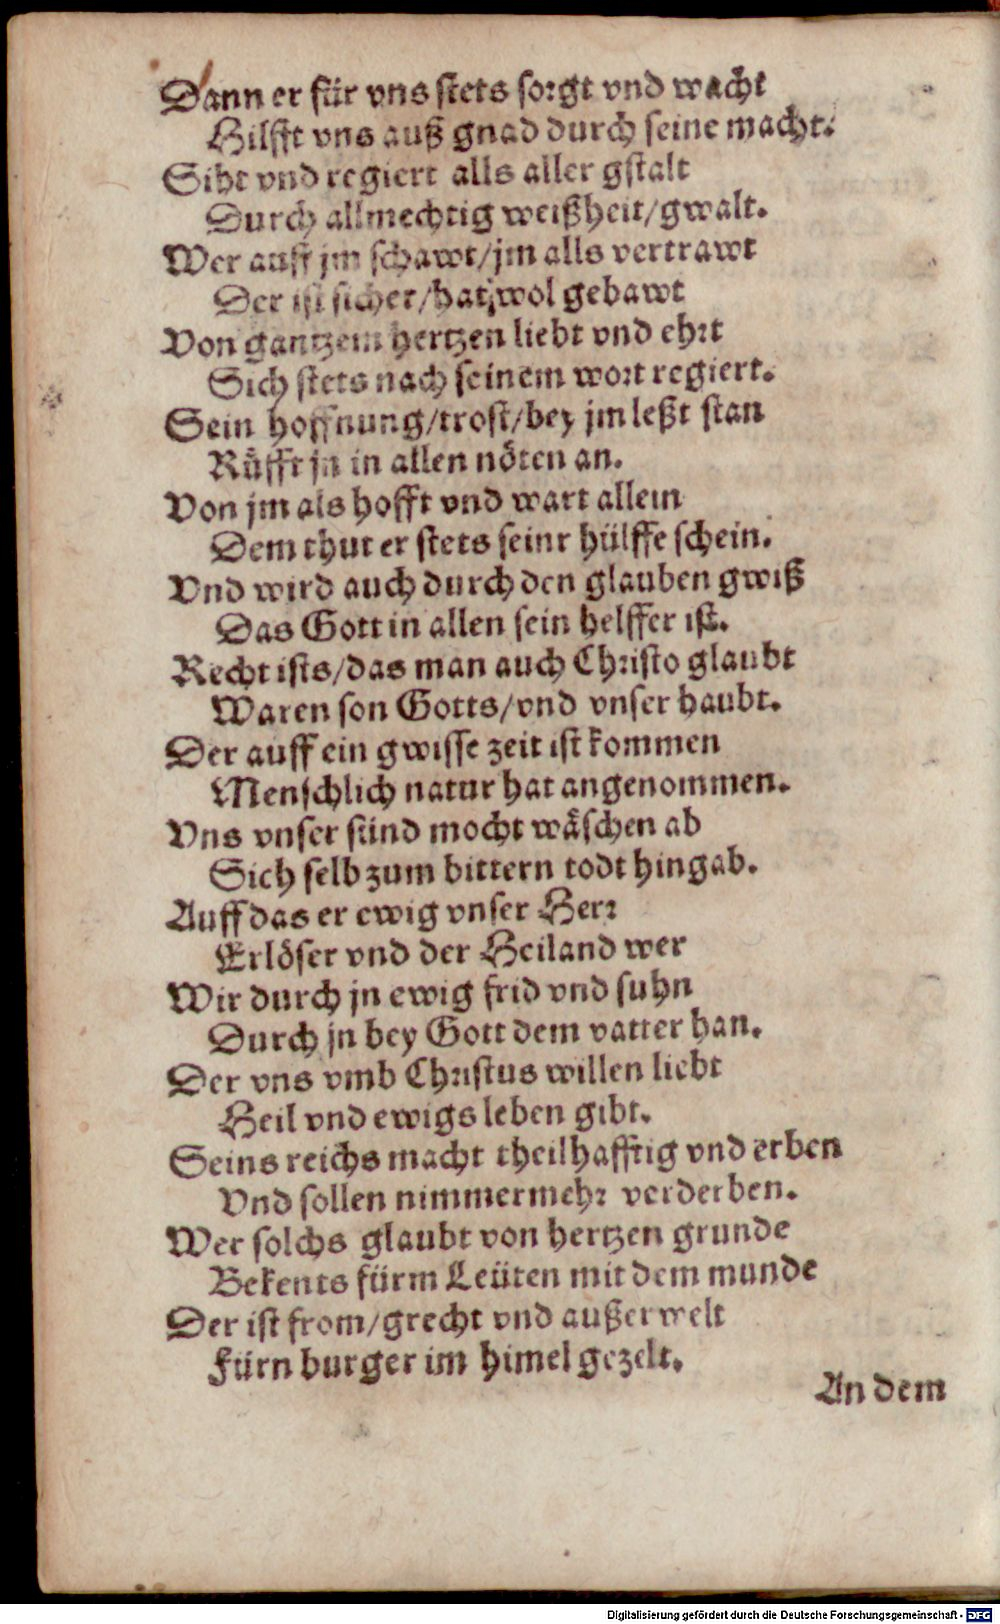 Dann er für vns stets sorgt vnd wacht
Hilfft vns auß gnad durch seine macht.
Siht vnd regiert alls aller gstalt
Durch allmechtig weißheit/gwalt.
Wer auff jm schawt/jm alls vertrawt
Der ist sicher/hat wol gebawt
Von gantzem hertzen liebt vnd ehrt
Sich stets nach seinem wort regiert.
Sein hoffnung/trost/bey jm leßt stan
Rüfft jn in allen nöten an.
Von jm als hofft vnd wart allein
Dem thut er stets seinr hülffe schein.
Vnd wird auch durch den glauben gwiß
Das Gott in allen sein helffer ist.
Recht ists/das man auch Christo glaubt
Waren son Gotts/vnd vnser haubt.
Der auff ein gwisse zeit ist kommen
Menschlich natur hat angenommen.
Vns vnser sünd mocht wäschen ab
Sich selb zum bittern todt hingab.
Auff das er ewig vnser Herr
Erlöser vnd der Heiland wer
Wir durch jn ewig frid vnd suhn
Durch jn bey Gott dem vatter han.
Der vns vmb Christus willen liebt
Heil vnd ewigs leben gibt.
Seins reichs macht theilhafftig vnd erben
Vnd sollen nimmermehr verderben.
Wer solchs glaubt von hertzen grunde
Bekents fürm Leüten mit dem munde
Der ist from/grecht vnd außerwelt
Fürn burger im himel gezelt.
An dem
Digitalisierung gefördert durch die Deutsche Forschungsgemeinschaft - DFG